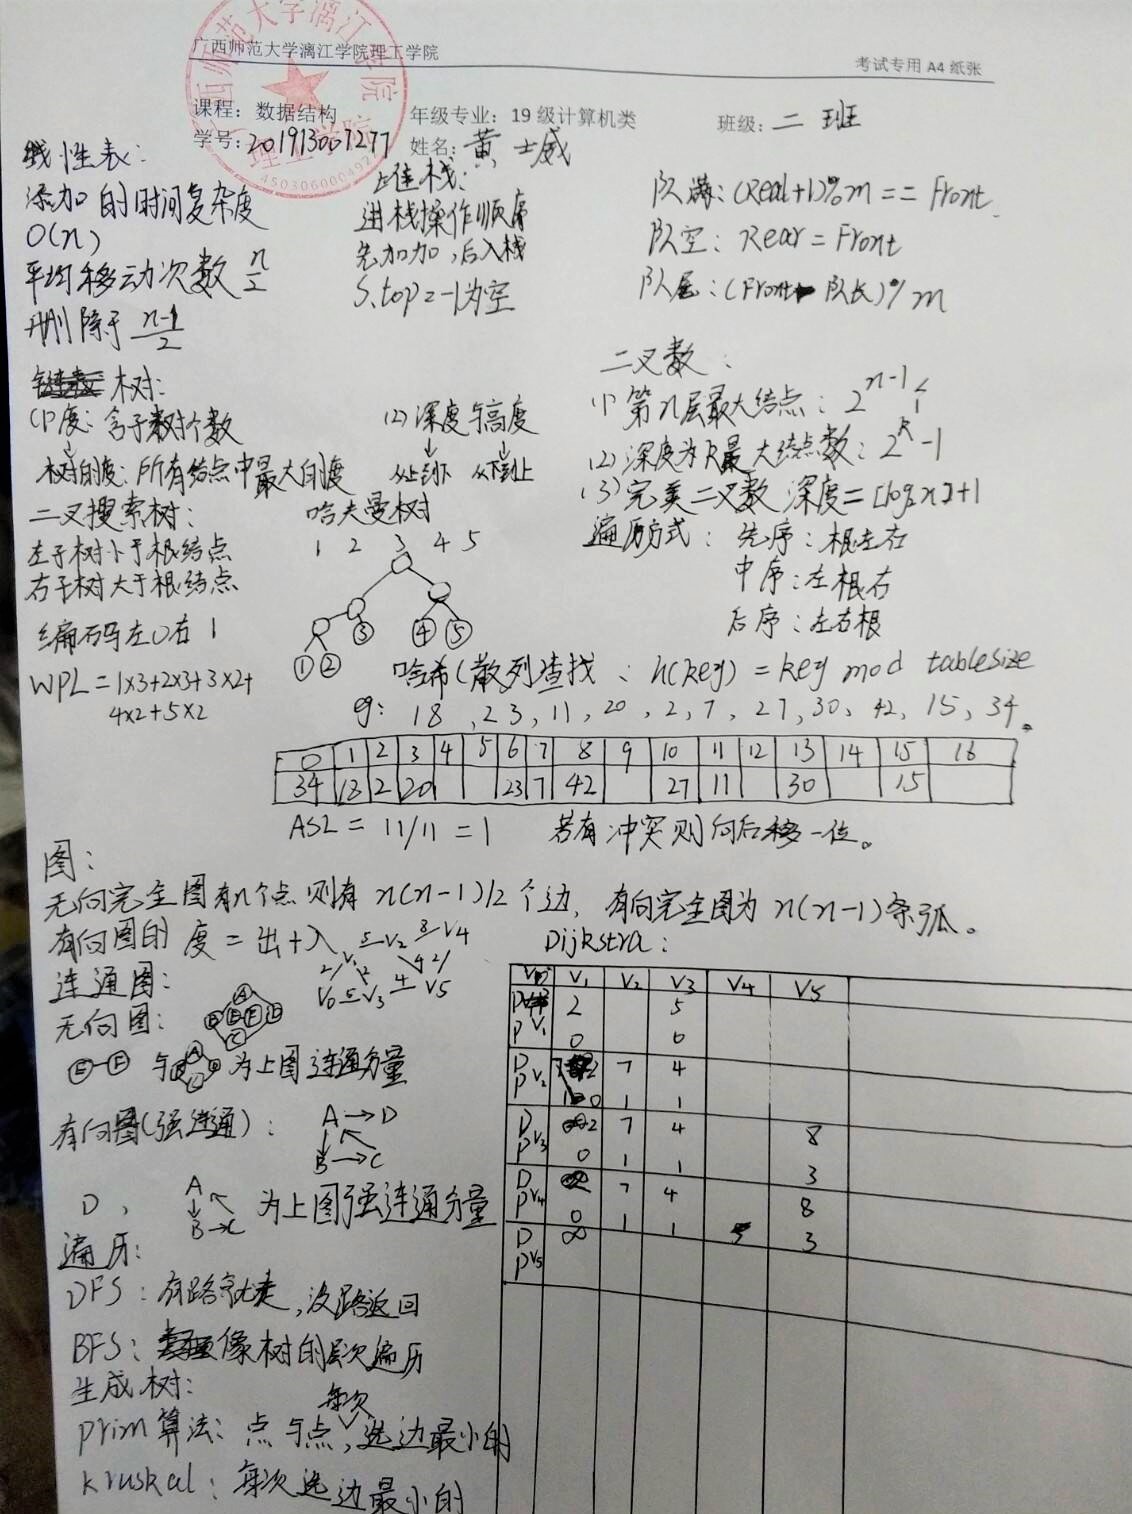 广西师范大学漓江学院理工学院
考试专用 A4 纸张
课程：数据结构
年级专业：19 级计算机类
班级：二 班
学号：201913007277
姓名：黄士威
4503060004922
线性表：
添加的时间复杂度
O(n)
平均移动次数 n/2
删除于 (n-1)/2
堆栈：
进栈操作顺序
先加加，后入栈
S.top=-1为空
队满：(Rear+1)%m == Front
队空：Rear = Front
队尾：(Front 队长)% m
树：
(1)度：含子树个数
树的度：所有结点中最大的度
(2)深度与高度
从上到下 从下到上
二叉数：
(1)第n层最大结点：2^(n-1)
(2)深度为k最大结点数：2^k-1
(3)完美二叉数 深度=[log2n]+1
遍历方式：先序：根左右
中序：左根右
后序：左右根
二叉搜索树：
左子树小于根结点
右子树大于根结点
哈夫曼树
1 2 3 4 5
③ ④ ⑤
① ②
编码左0右1
WPL=1×3+2×3+3×2+
4×2+5×2
哈希(散列查找：h(key) = key mod tablesize
18,23,11,20,2,7,27,30,42,15,34。
0 1 2 3 4 5 6 7 8 9 10 11 12 13 14 15 16
34 18 2 20 23 7 42 27 11 30 15
ASL = 11/11 = 1 若有冲突则向后移一位。
图：
无向完全图有n个点则有 n(n-1)/2 个边，有向完全图为 n(n-1)条弧。
有向图的度=出+入
V2 V4
V1
V0 V3 V5
连通图：
无向图：
A
B E F D
C
E-F 与 为上图连通分量
有向图(强连通)：
A→D
B→C
D，
A
B→C
为上图强连通分量
遍历：
DFS：有路就走，没路返回
BFS：像树的层次遍历
生成树：
prim算法：点与点，每次选边最小的
kruskal：每次选边最小的
Dijkstra：
V1 V2 V3 V4 V5
D 2 5
P V1 0 0
D 7 4
P V2 0 1 1
D 2 7 4 8
P V3 0 1 1 3
D 7 4 8
P V4 0 1 1 3
D ∞
P V5